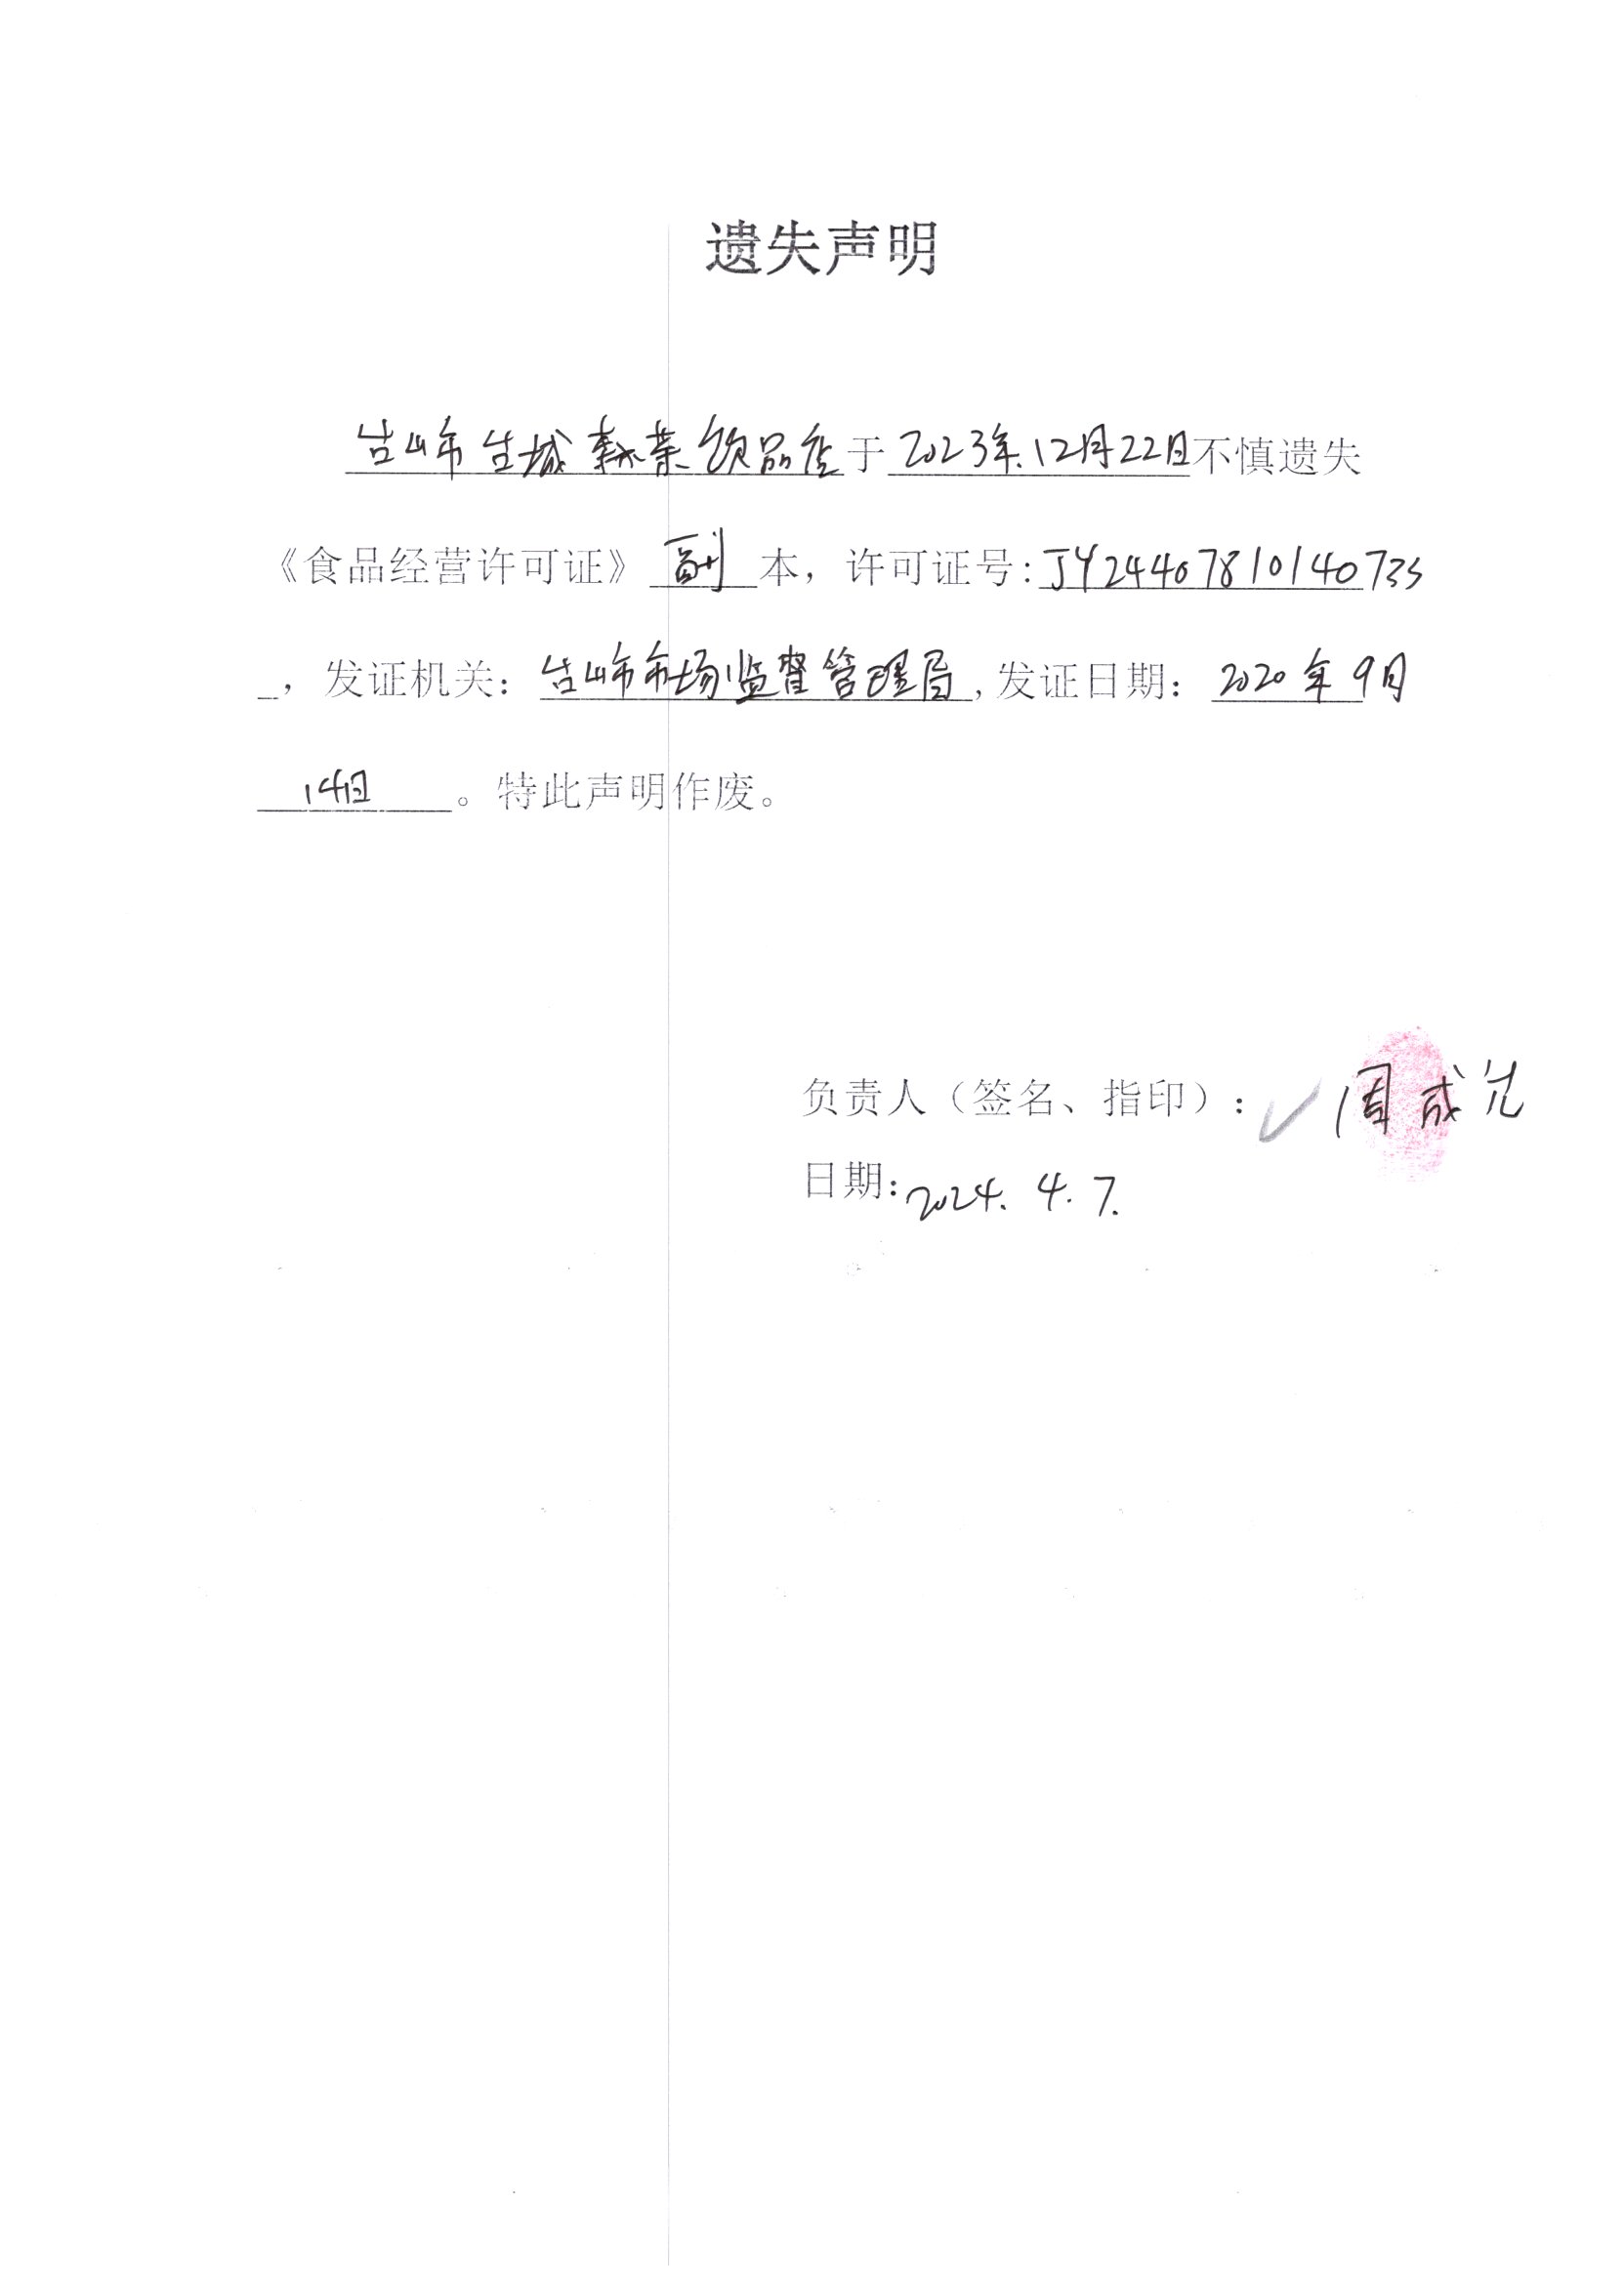 遗失声明
台山市台城 茶 饮品店于2023年.12月22日不慎遗失
《食品经营许可证》副本，许可证号:JY24407810140735
_，发证机关：台山市市场监督管理局,发证日期：2020年9月
14日。特此声明作废。
负责人（签名、指印）：✓周成
日期:2024.4.7.